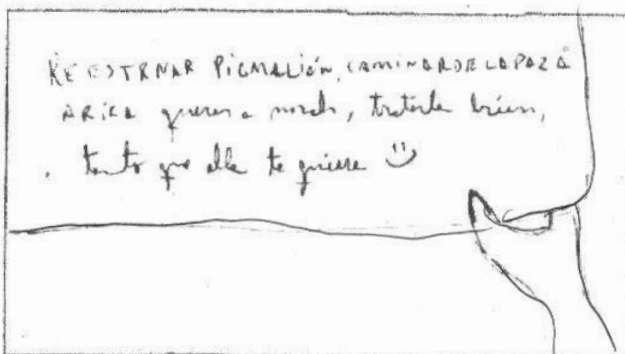 REESTRNAR PIGMALIÓN, CAMINAR DE LA PAZ A
ARICA querer a, tratarla bien,
tanto que ella te quiere